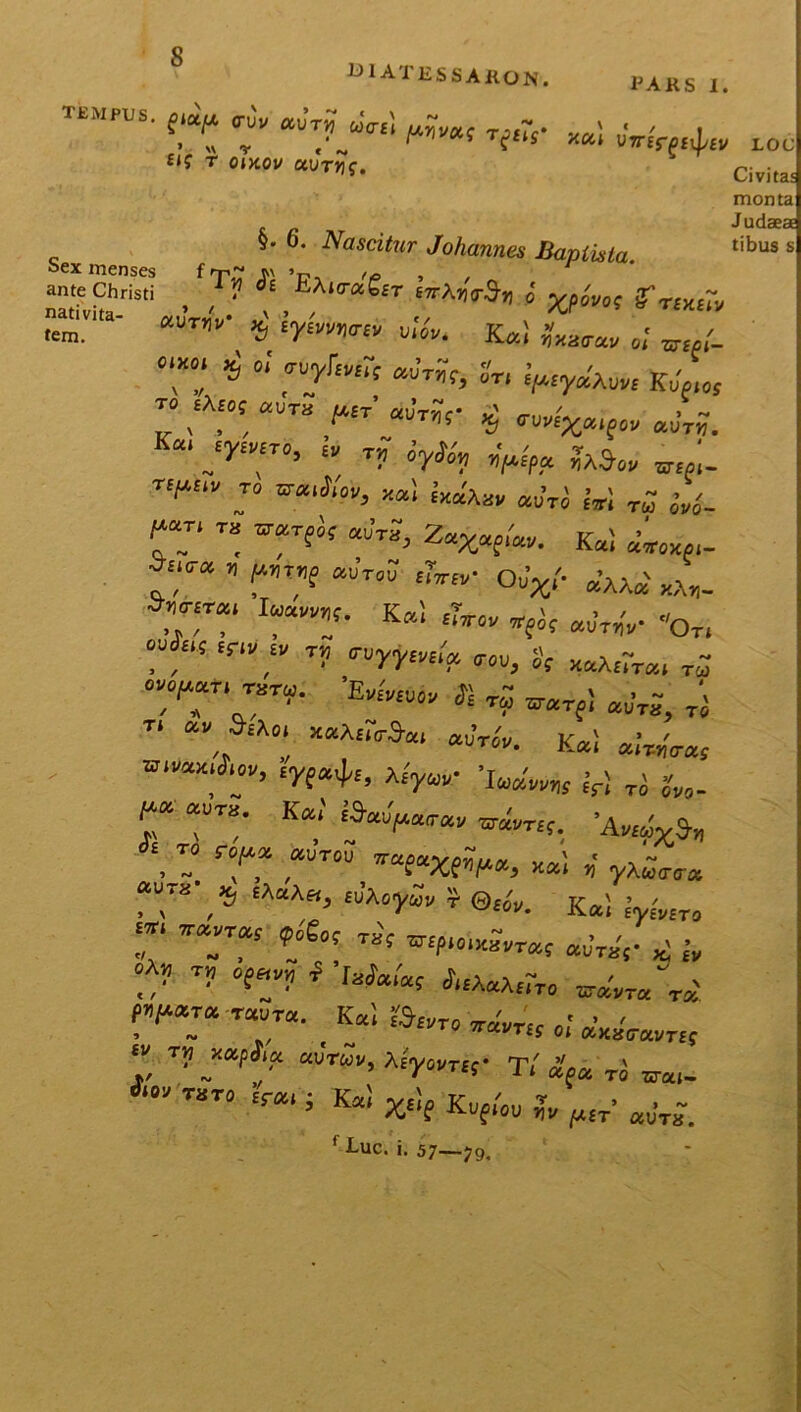 8
DIATESSARON.
PARS I.
TEMPUS.
LOC
ριὰμ σὺν αὐτῇ ὡσεὶ μῆνας τρεῖς· καὶ ὑπέςρεψεν
εἰς τ οἶκον αὑτῆς.
Civitas
monta
Judææ
tibus s
§. 6. Nascitur Johannes Baptista.
Sex menses
ante Christi
nativita-
tem.
f Τῇ δὲ Ἐλισάβετ ἐπλήσθη ὁ χρόνος τ τεκεῖν
αὐτήν· ϗ ἐγέννησεν υἱόν. Καὶ ἤκουσαν οἱ περί-
οικοι ϗ οἱ συγγενεῖς αὐτῆς, ὅτι ἐμεγάλυνε Κύριος
τὸ ἔλεος αὑτοῦ μετ’ αὐτῆς· ϗ συνέχαιρον αὐτῇ.
Καὶ ἐγένετο, ἐν τῇ ὀγδόῃ ἡμέρᾳ ἦλθον περι-
τεμεῖν τὸ παιδίον, καὶ ἐκάλουν αὐτὸ ἐπὶ τῷ ὀνό-
ματι τοῦ πατρὸς αὐτοῦ, Ζαχαρίαν. Καὶ ἀποκρι-
θεῖσα ἡ μήτηρ αὐτοῦ εἶπεν· Οὐχί· ἀλλὰ κλη-
θήσεται Ἰωάννης. Καὶ εἶπον πρὸς αὐτήν· Ὅτι
οὐδείς ἐςιν ἐν τῇ συγγενείᾳ σου, ὃς καλεῖται τῷ
ὀνόματι τούτῳ. Ἐνένευον δὲ τῷ πατρὶ αὐτοῦ, τὸ
τί ἂν θέλοι καλεῖσθαι αὐτόν. Καὶ αἰτήσας
πινακίδιον, ἔγραψε, λέγων· Ἰωάννης ἐςὶ τὸ ὄνο-
μα αὐτοῦ. Καὶ ἐθαύμασαν πάντες. Ἀνεώχθη
δὲ τὸ ςόμα αὐτοῦ παραχρῆμα, καὶ ἡ γλῶσσα
αὐτοῦ· ϗ ἐλάλει, εὐλογῶν τ Θεόν. Καὶ ἐγένετο
ἐπὶ πάντας φόβος τοὺς περιοικοῦντας αὐτούς· ϗ ἐν
ὅλῃ τῇ ὀρεινῇ τ Ἰουδαίας διελαλεῖτο πάντα τὰ
ῥήματα ταῦτα. Καὶ ἔθεντο πάντες οἱ ἀκούσαντες
ἐν τῇ καρδίᾳ αὑτῶν, λέγοντες· Τί ἄρα τὸ παι-
δίον τοῦτο ἔςαι; Καὶ χεὶρ Κυρίου ἦν μετ’ αὐτοῦ.
f Luc. i. 57—79.